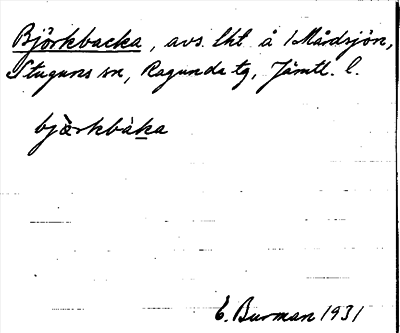 Björkbacka, avs. lht å 1 Mårdsjön,
Stuguns sn, Ragunda tg, Jämtl. l.
bjàrkbàka
E. Burman 1931